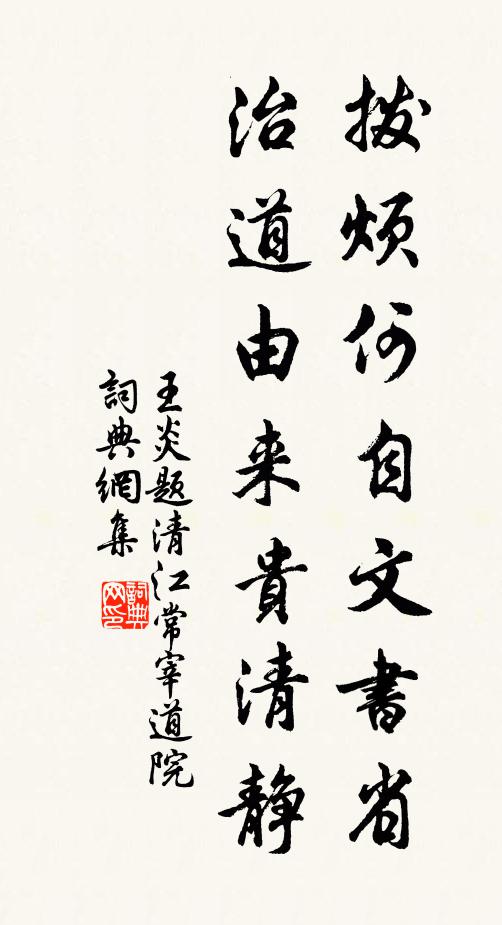 拨烦何自文書省
治道由来貴清靜
王炎题清江常宰道院
詞典網集
詞典网印